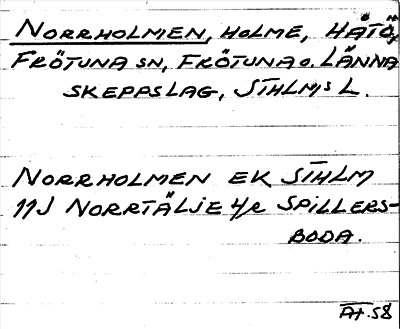 NORRHOLMEN, HOLME, HÄTÖ,
FRÖTUNA SN, FRÖTUNA O. LÄNNA
SKEPPSLAG, STHLMS L.
NORRHOLMEN EK STHLM
11J NORRTÄLJE 4/2 SPILLERS-
BODA.
AH.58